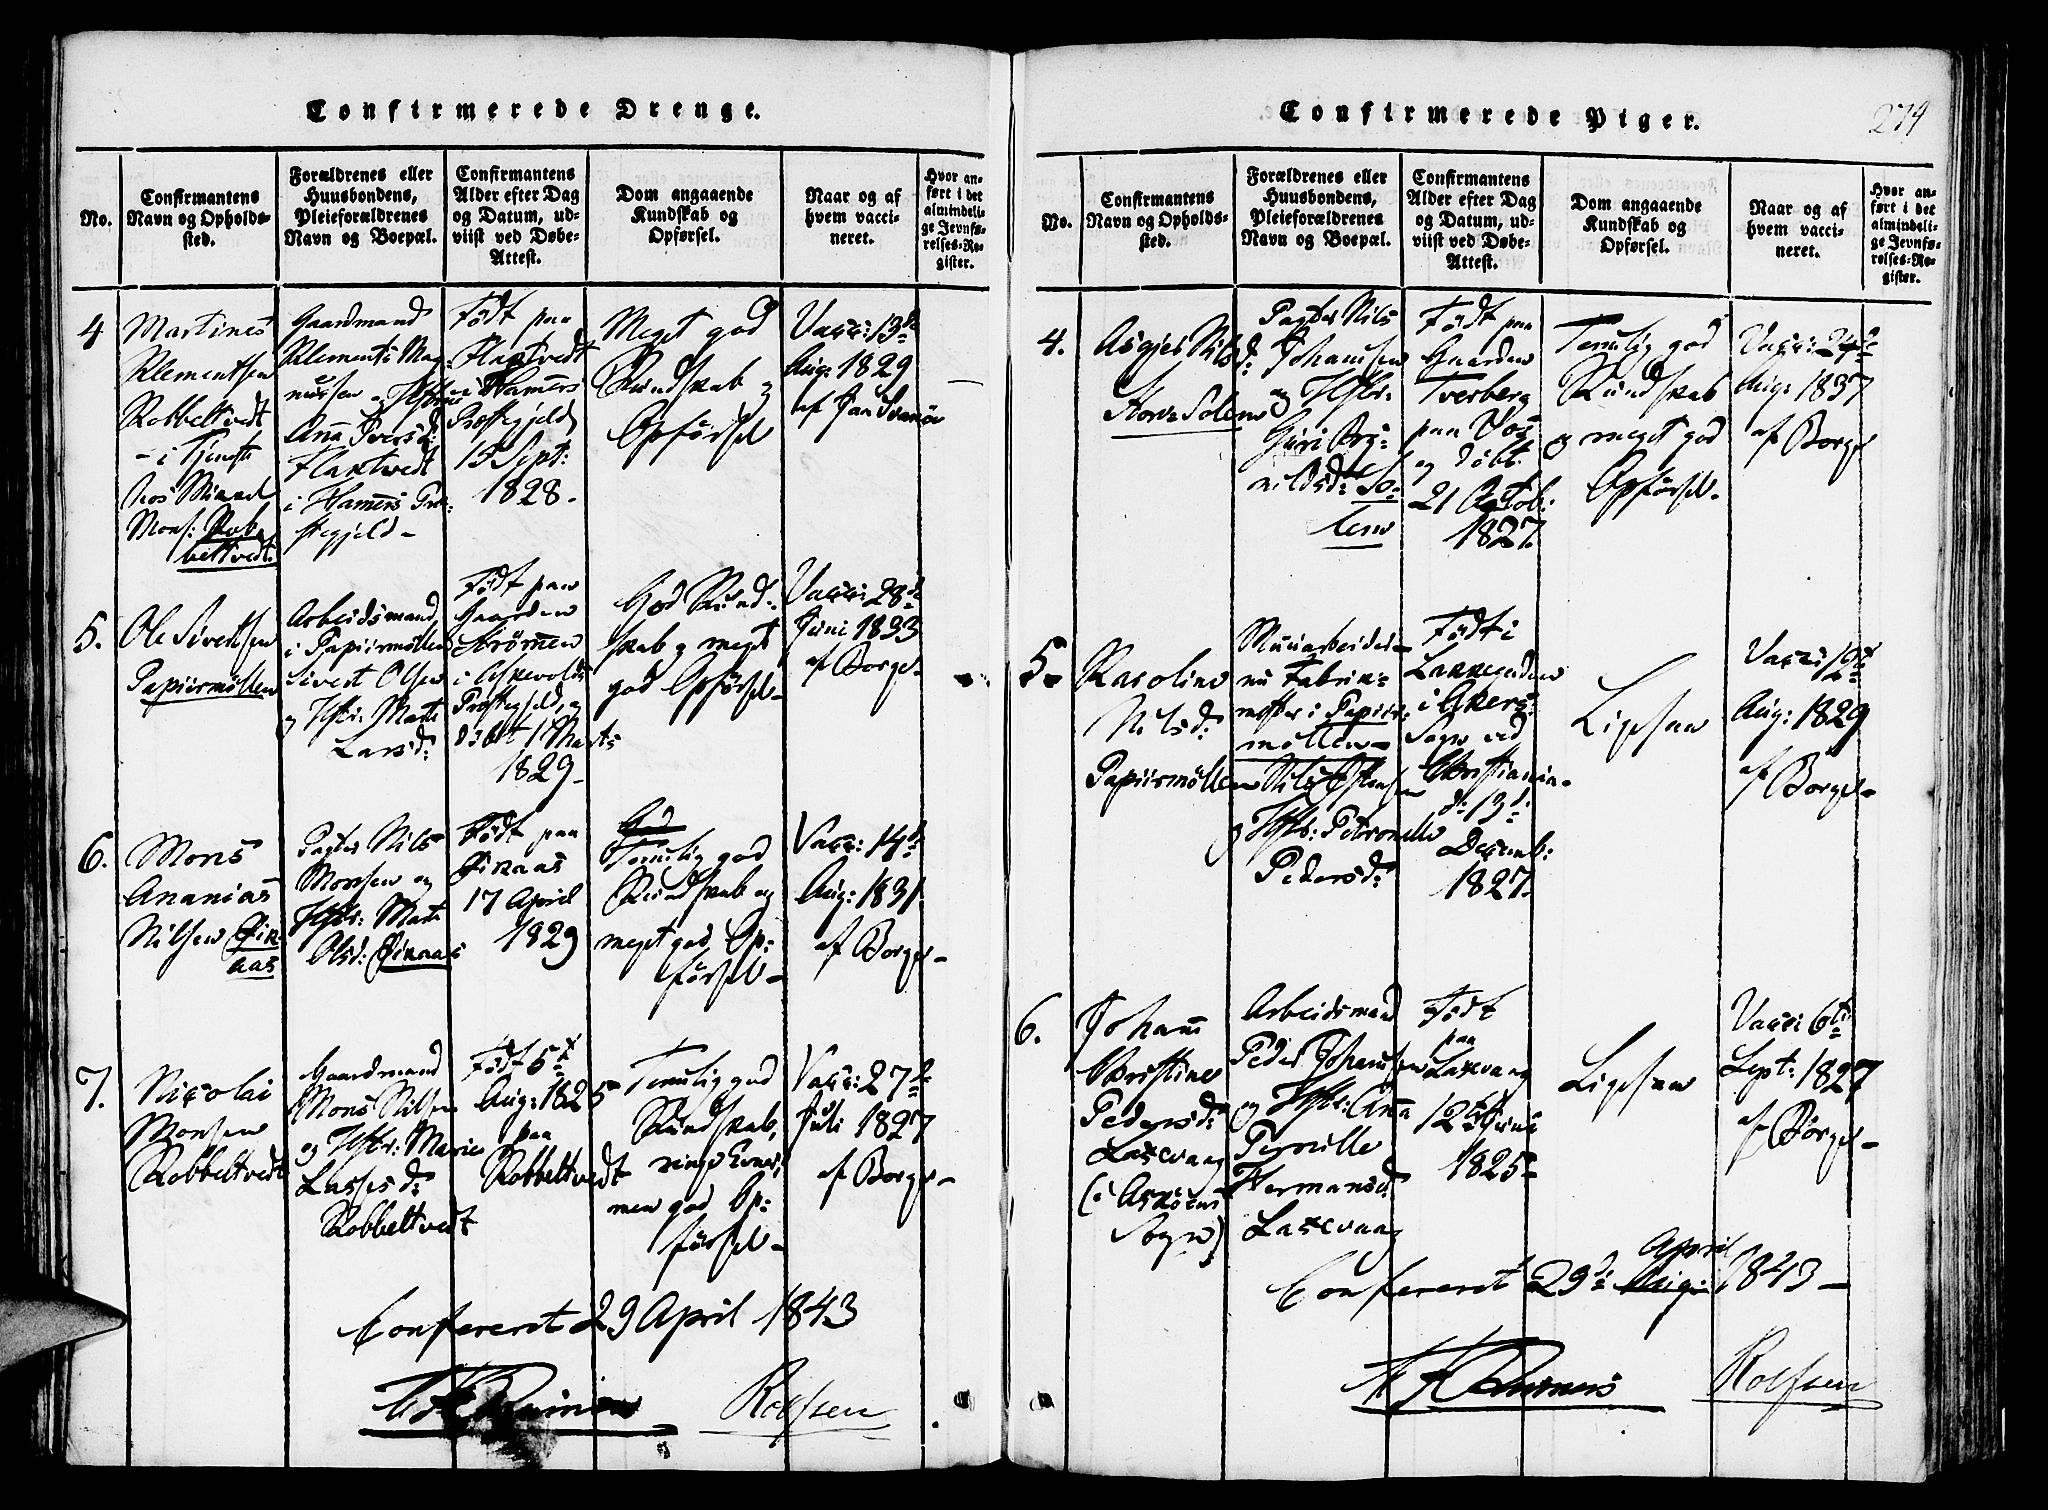 Confirmerede Drenge.
No.
Confirmantens
Navn og Opholds-
sted.
Forældrenes eller
Huusbondens,
Pleieforældrenes
Navn og Boepæl.
Confirmantens
Alder efter Dag
og Datum, ud-
viist ved Døbe-
Attest.
Dom angaaende
Kundskab og
Opførsel.
Naar og af
hvem vacci-
neret.
Hvor an-
ført i det
almindeli-
ge Jevnfø-
relses-Re-
gister.
4
Martines
Klementsen
Robbeltvedt
- i Tjeneste
hos
Mons: Rob-
beltvedt.
Gaardmand
Klements Mag
nussen og Hstru
Ana Iversd:
Flaktvedt
i Hamers Præ-
stegjeld-
Født paa
Flaktvedt
i Hamers
Præstegjeld
15 Sept:
1828.
Meget god
Kundskab og
Opførsel
Vacc: 13de
Aug: 1829
af Jan Svanøe
5.
Ole Sivertsen
Papiirmøllen
Arbeidsmand
i Papiirmøllen
Sivert Olsen
og Hstr: Marte
Larsd:
Født paa
Gaarden
Strømen
i Askevolds
Præstegjeld, og
døbt 1 Marts
1829-
God Kund-
skab og meget
god Opførsel-
Vacc: 28de
Juni 1833
af Borge-
6.
Mons
Ananias
Nilsen Ek-
naas
Pagter Nils
Monsen og
Hstr: Marte
Olsd:
Født paa
17 April
1829
Temelig god
Kundskab og
meget god Op-
førsel-
Vacc: 14de
Aug: 1831
af Borge-
7.
Nicolai
Monsen
Robbeltvedt
Gaardmand
Mons Nilsen
og Hstr: Marie
Lassesd:
Robbeltvedt
Født 5te
Aug: 1825
paa
Robbeltvedt
Temelig god
Kundskab,
ringe Evner,
men god Op-
førsel-
Vacc: 27de
Juli 1827
af Borge-
Confereret 29 April 1843
Rolfsen
Confirmerede Piger.
274
No.
Confirmantens
Navn og Opholds-
sted.
Forældrenes eller
Huusbondens,
Pleieforældrenes
Navn og Boepæl.
Confirmantens
Alder efter Dag
og Datum, ud-
viist ved Døbe-
Attest.
Dom angaaende
Kundskab og
Opførsel.
Naar og af
hvem vacci-
neret.
Hvor an-
ført i det
almindeli-
ge Jevnfø-
relses-Re-
gister.
4.
Asgjer Nilsd:
Store Solem
Pagter Nils
Johannsen
og Hstr:
Guri Bry-
nildsd: So-
lem
Født
paa
Gaarden
Tverberg
paa Vos
og døbt
21 Octob:
1827.
Temelig god
Kundskab
og meget god
Opførsel-
Vacc: 24de
Aug: 1837
af Borge
5.
Karoline
Nilsd:
Papiirmøllen
Muurarbeider
nu Fabrik-
mester i Papiir-
møllen-
Nils Estensen
og Hstr: Petronelle
Pedersd:
Født i
i Akers
Sogn ved
Christiania-
d: 13de
Decemb:
1827-
Ligesaa
Vacc: 19de
Aug: 1829
af Borge-
6.
Johanne
Christine
Pedersd:
Laxevaag
(i Askøens
Sogn)
Arbeidsmand
Peder Johannsen
og Hstr: Anna
Pernille
Hermansd:
Laxevaag
Født
paa
Laxevaag
12te Juni
1825-
Ligesaa
Vacc: 6te
Sept: 1827
af Borge-
April
Confereret 29de Aug: 1843-
Rolfsen